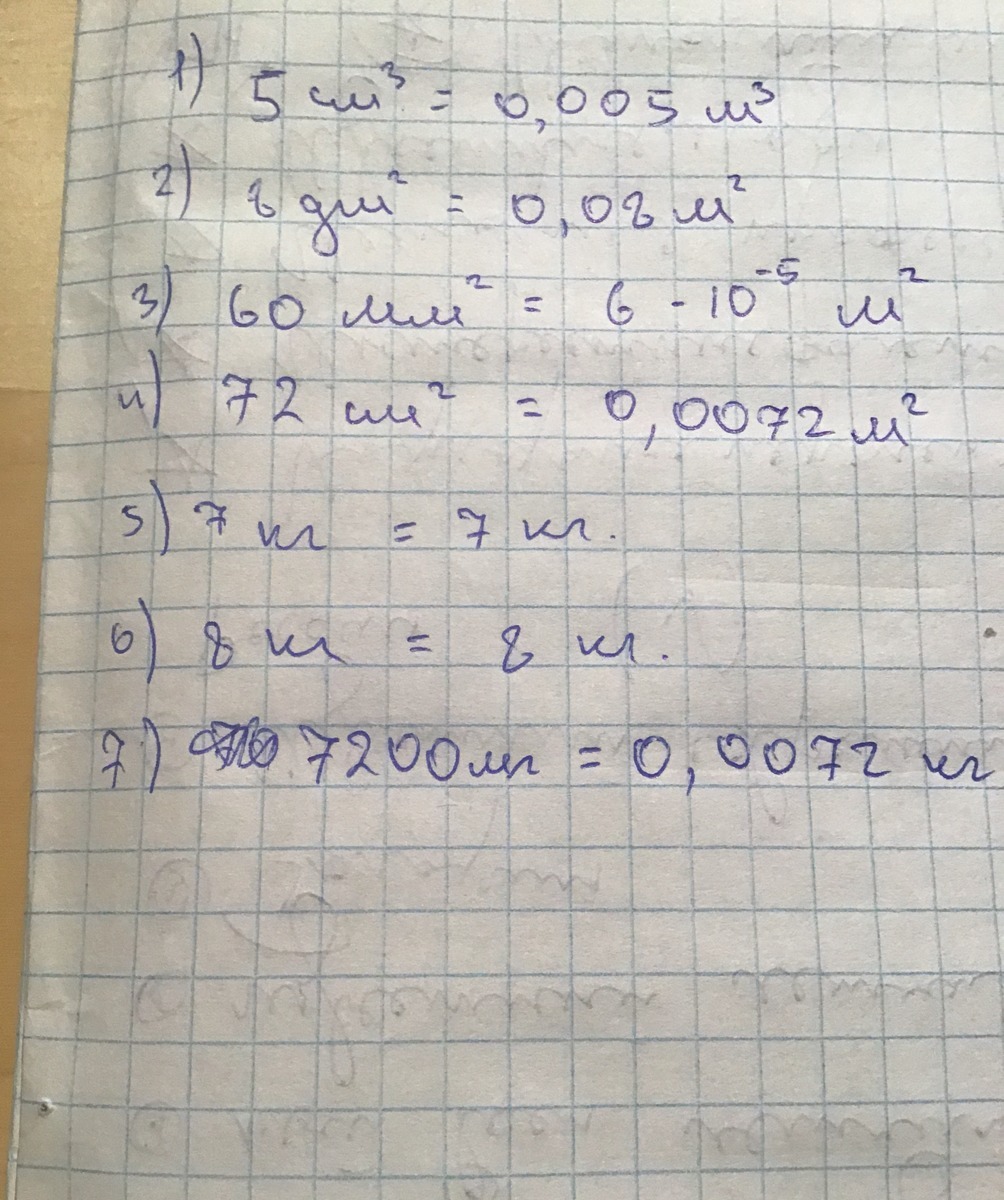 1) 5 см³ = 0,005 м³
2) 8 дм² = 0,08 м²
3) 60 мм² = 6 · 10⁻⁵ м²
4) 72 см² = 0,0072 м²
5) 7 кг = 7 кг.
6) 8 кг = 8 кг.
7) 7200 мг = 0,0072 кг